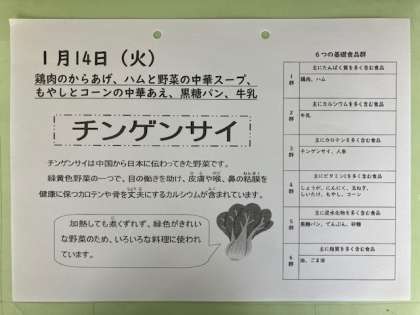 1月14日（火）
鶏肉のからあげ、ハムと野菜の中華スープ、
もやしとコーンの中華あえ、黒糖パン、牛乳
チンゲンサイ
チンゲンサイは中国から日本に伝わってきた野菜です。
緑黄色野菜の一つで、目の働きを助け、皮膚や喉、鼻の粘膜を
健康に保つカロテンや骨を丈夫にするカルシウムが含まれています。
加熱しても煮くずれず、緑色がきれい
な野菜のため、いろいろな料理に使われ
ています。
6つの基礎食品群
1群
主にたんぱく質を多く含む食品
鶏肉、ハム
2群
主にカルシウムを多く含む食品
牛乳
3群
主にカロテンを多く含む食品
チンゲンサイ、人参
4群
主にビタミンCを多く含む食品
しょうが、にんにく、玉ねぎ、
しいたけ、もやし、コーン
5群
主に炭水化物を多く含む食品
黒糖パン、でんぷん、砂糖
6群
主に脂質を多く含む食品
油、ごま油